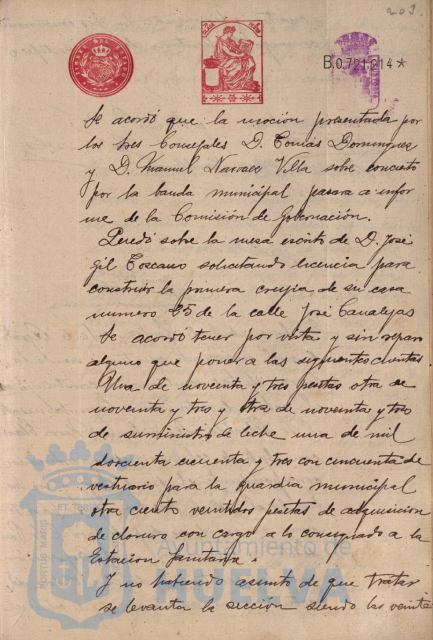 203
B.0.791.214★
Se acordó que la moción presentada por
los tres Concejales D. Tomás Dominguez
y D. Manuel Narvaez Villa sobre concierto
por la banda municipal pasara a infor
me de la Comisión de Gobernación.
Quedó sobre la mesa escrito de D. José
Gil Toscano solicitando licencia para
construir la primera crugia de su casa
numero 25 de la calle José Canalejas
Se acordó tener por vista y sin reparo
alguno que poner a las siguientes cuentas
Una de noventa y tres pesetas otra de
noventa y tres y otra de noventa y tres
de suministro de leche una de mil
doscienta cicuenta y tres con cincuenta de
vestuario para la Guardia municipal
otra ciento veintidos pesetas de adquisicion
de cloruro con cargo a lo consignado a la
Estacion Sanitaria.
Y no habiendo asunto de que tratar
se levanta la sección siendo las veinte
Ayuntamiento de
HUELVA